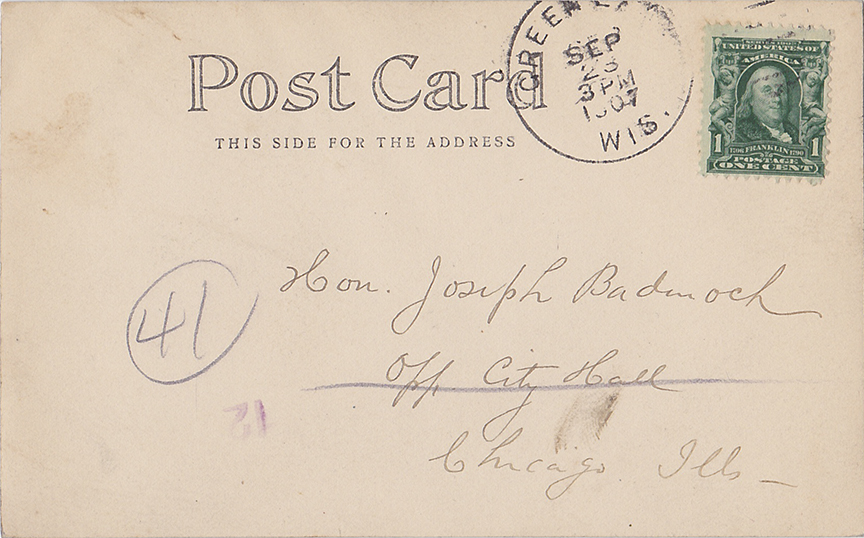 Post Card
THIS SIDE FOR THE ADDRESS
SEP
23
3 PM
1907
WIS.
SERIES 1902
UNITED STATES OF
AMERICA
1 1706 FRANKLIN 1790 1
POSTAGE
ONE CENT
Hon. Joseph Badenoch
41
Opp City Hall
12
Chicago Ills